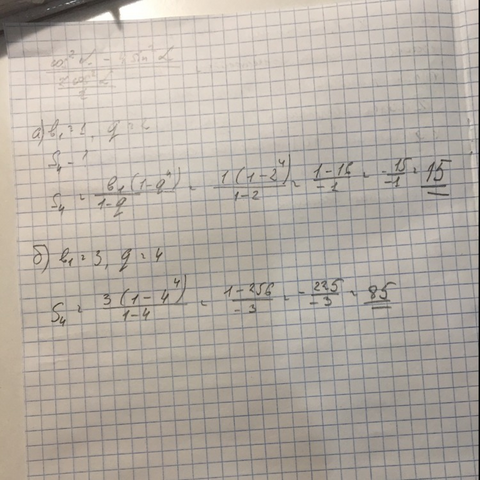 а) b₁ = 1, q = 2
S₄ - ?
S₄ = b₁(1-q⁴)/1-q = 1(1-2⁴)/1-2 = 1-16/-1 = -15/-1 = 15
б) b₁ = 3, q = 4
S₄ = 3(1-4⁴)/1-4 = 1-256/-3 = -225/-3 = 85